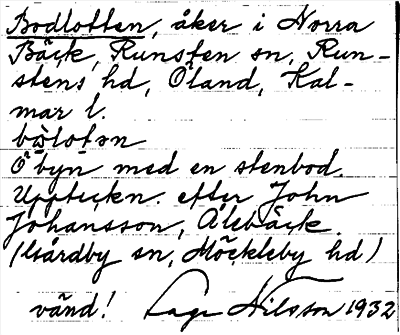 Bodlotten, åker i Norra
Bäck, Runsten sn, Run-
stens hd, Öland, Kal-
mar l.
bòlotən
Ö byn med en stenbod.
Uppteckn. efter John
Johansson, Ålebäck.
(Gårdby sn, Möckleby hd)
vänd! Lage Nilsson 1932